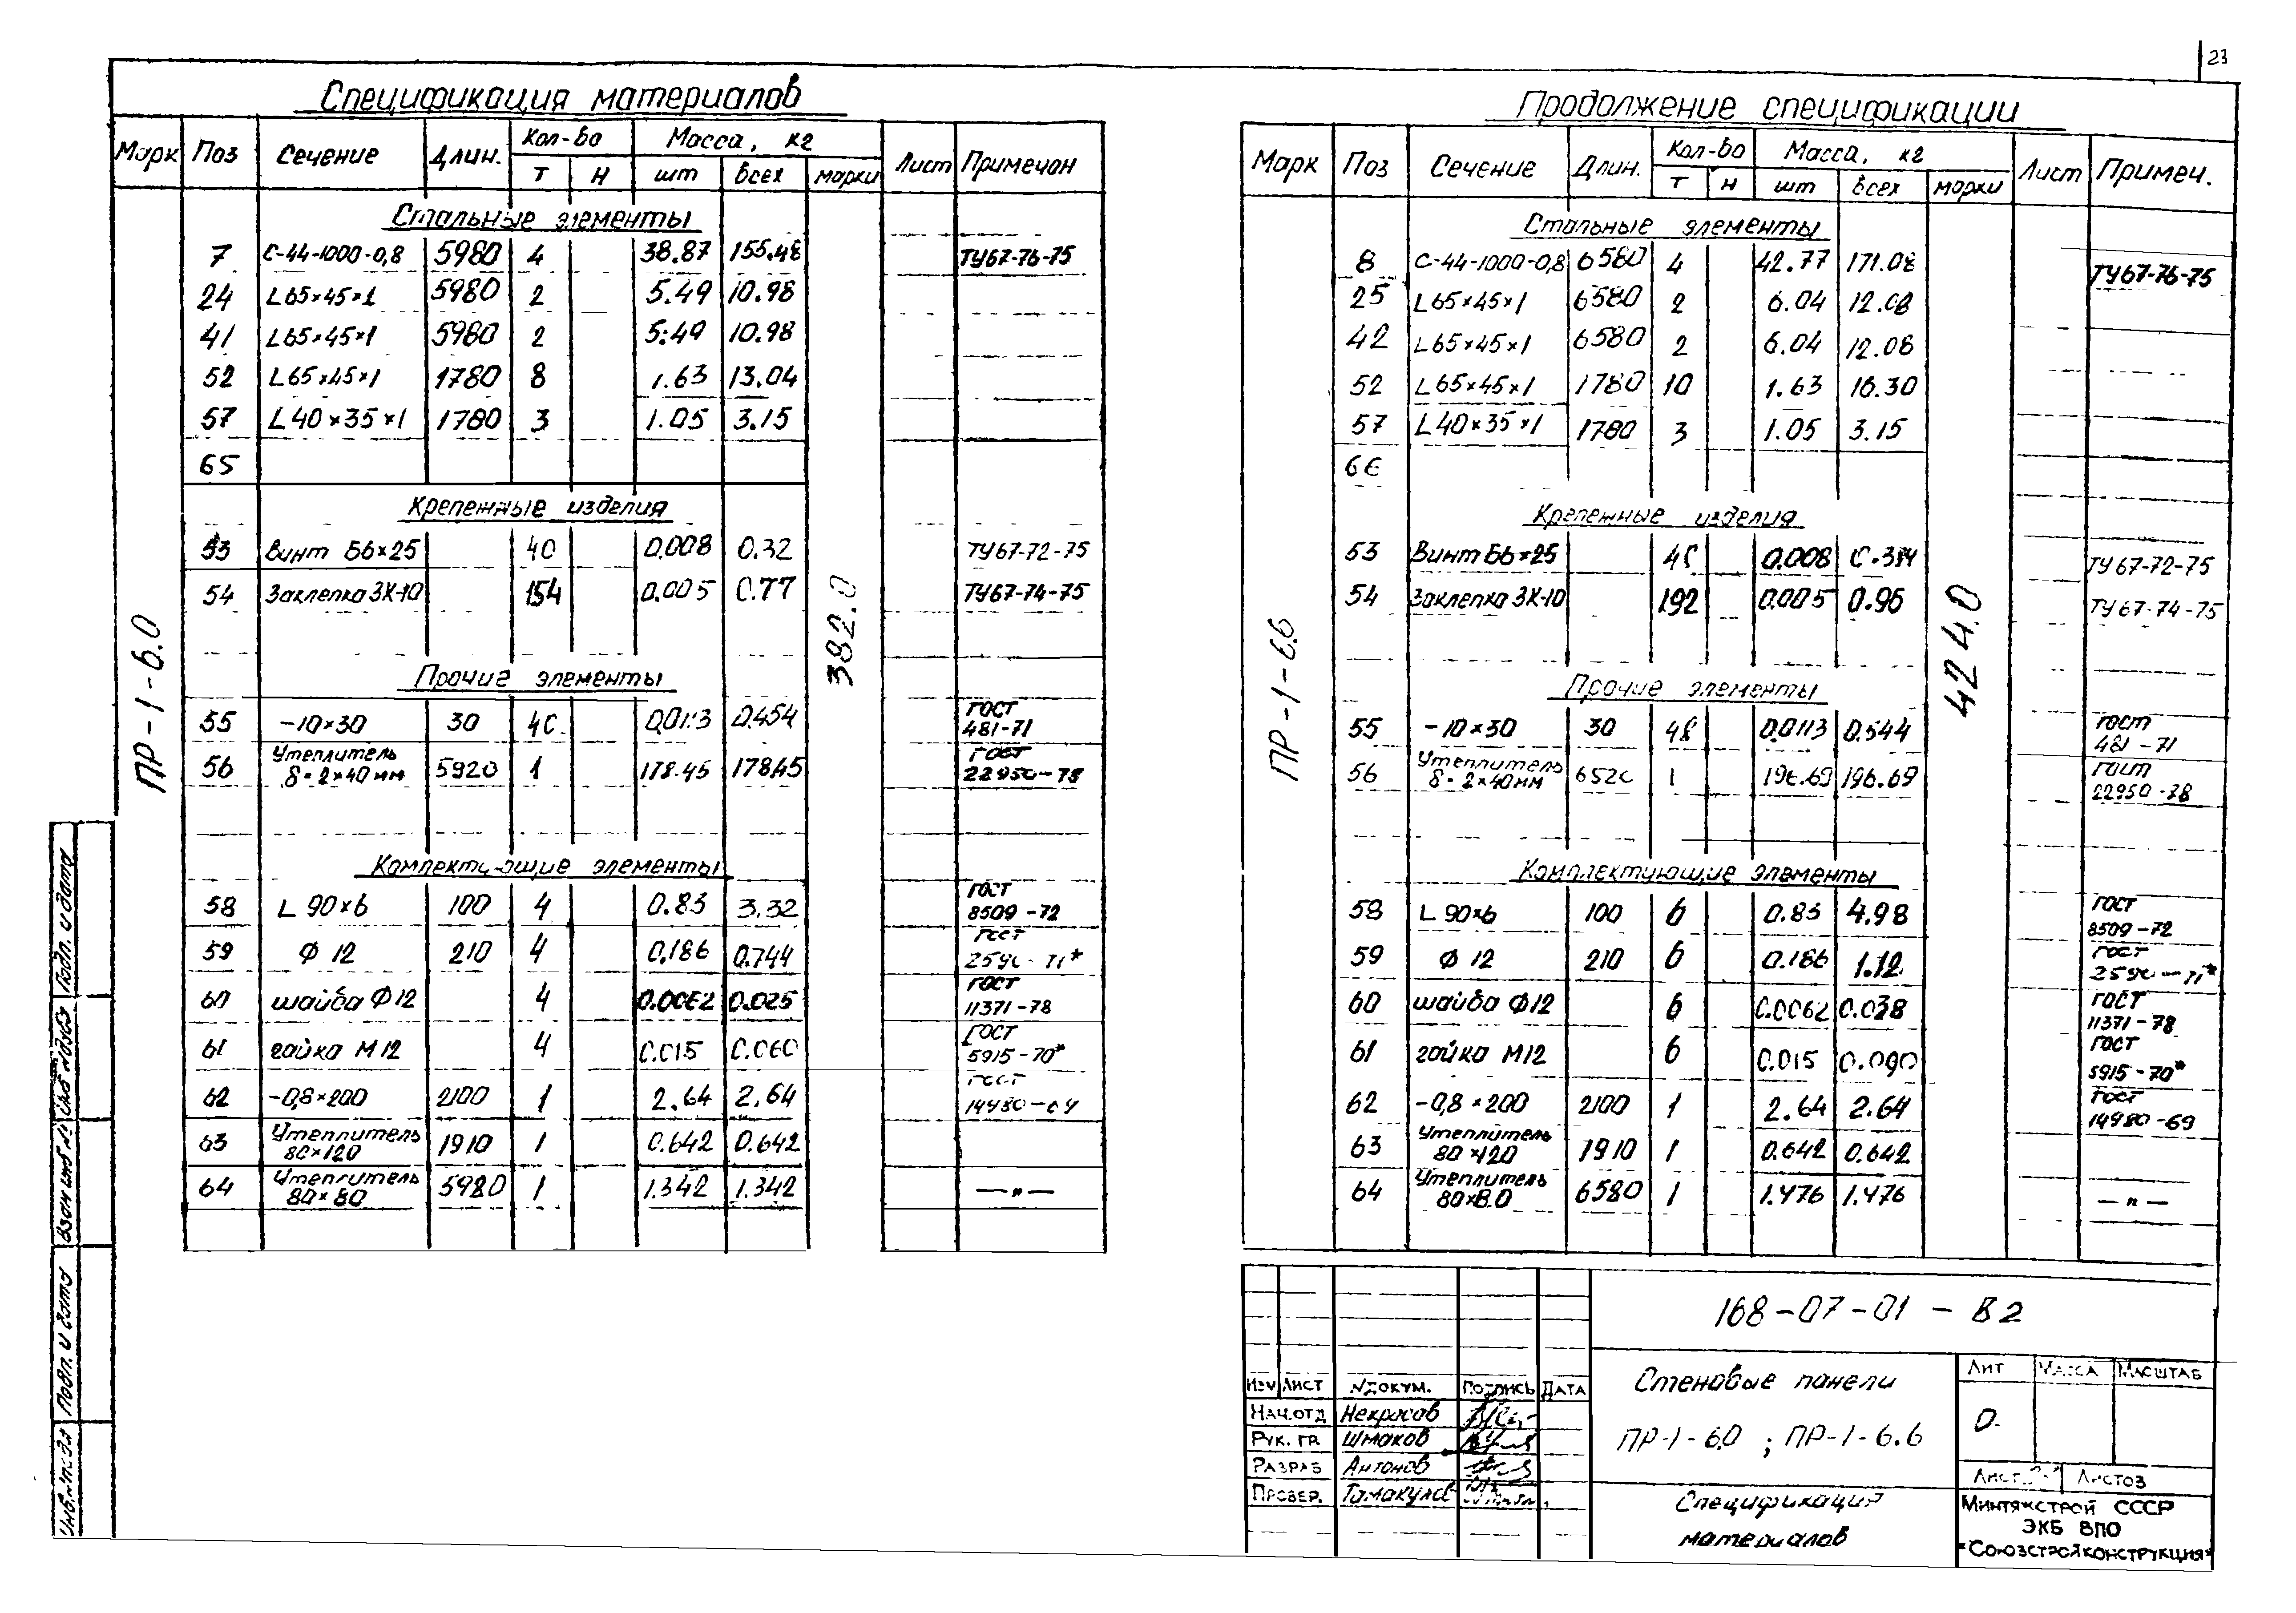 23
Спецификация материалов
Марк Поз Сечение Длин. Кол-во Масса, кг Лист Примечан
т н шт всех марки
ПР-1-6.0
382.0
Стальные элементы
7 С-44-1000-0,8 5980 4 38.87 155.48 ТУ67-76-75
24 L65×45×1 5980 2 5.49 10.98
41 L65×45×1 5980 2 5.49 10.98
52 L65×45×1 1780 8 1.63 13.04
57 L40×35×1 1780 3 1.05 3.15
65
Крепежные изделия
53 Винт Б6×25 40 0.008 0.32 ТУ67-72-75
54 Заклепка ЗК-10 154 0.005 0.77 ТУ67-74-75
Прочие элементы
55 -10×30 30 40 0.0113 0.454 ГОСТ 481-71
56 Утеплитель δ=2×40мм 5920 1 178.45 178.45 ГОСТ 22950-78
Комплектующие элементы
58 L 90×6 100 4 0.83 3.32 ГОСТ 8509-72
59 Ф 12 210 4 0,186 0.744 ГОСТ 2590-71*
60 шайба Ф12 4 0.0062 0.025 ГОСТ 11371-78
61 гайка М12 4 0.015 0.060 ГОСТ 5915-70*
62 -0,8×200 2100 1 2.64 2.64 ГОСТ
63 Утеплитель 80×120 1910 1 0.642 0.642
64 Утеплитель 80×80 5980 1 1.342 1.342 —"—
Продолжение спецификации
Марк Поз Сечение Длин. Кол-во Масса, кг Лист Примеч.
т н шт всех марки
ПР-1-6.6
424.0
Стальные элементы
8 С-44-1000-0,8 6580 4 42.77 171.08 ТУ67-76-75
25 L65×45×1 6580 2 6.04 12.08
42 L65×45×1 6580 2 6.04 12.08
52 L65×45×1 1780 10 1.63 16.30
57 L40×35×1 1780 3 1.05 3.15
66
Крепежные изделия
53 Винт Б6×25 0.008 ТУ67-72-75
54 Заклепка ЗК-10 192 0.005 0.96 ТУ67-74-75
Прочие элементы
55 -10×30 30 48 0.0113 0.544 ГОСТ 481-71
56 Утеплитель δ=2×40мм 6520 1 196.69 196.69 ГОСТ 22950-78
Комплектующие элементы
58 L 90×6 100 6 0.83 4.98 ГОСТ 8509-72
59 Ф 12 210 6 0.186 1.12 ГОСТ 2590-71*
60 шайба Ф12 6 0.0062 0.038 ГОСТ 11371-78
61 гайка М12 6 0.015 0.090 ГОСТ 5915-70*
62 -0,8×200 2100 1 2.64 2.64 ГОСТ 14980-69
63 Утеплитель 80×120 1910 1 0.642 0.642
64 Утеплитель 80×80 6580 1 1.476 1.476 —"—
168-07-01-В2
Изм Лист №докум. Подпись Дата
Нач.отд Некрасов
Рук. гр. Шмаков
Разраб Антонов
Провер.
Стеновые панели
ПР-1-6.0; ПР-1-6.6
Спецификация
материалов
Лит Масса Масштаб
Лист Листов
Минтяжстрой СССР
ЭКБ ВПО
"Союзстройконструкция"
Подп. и дата
Взам инв №
Подп. и дата